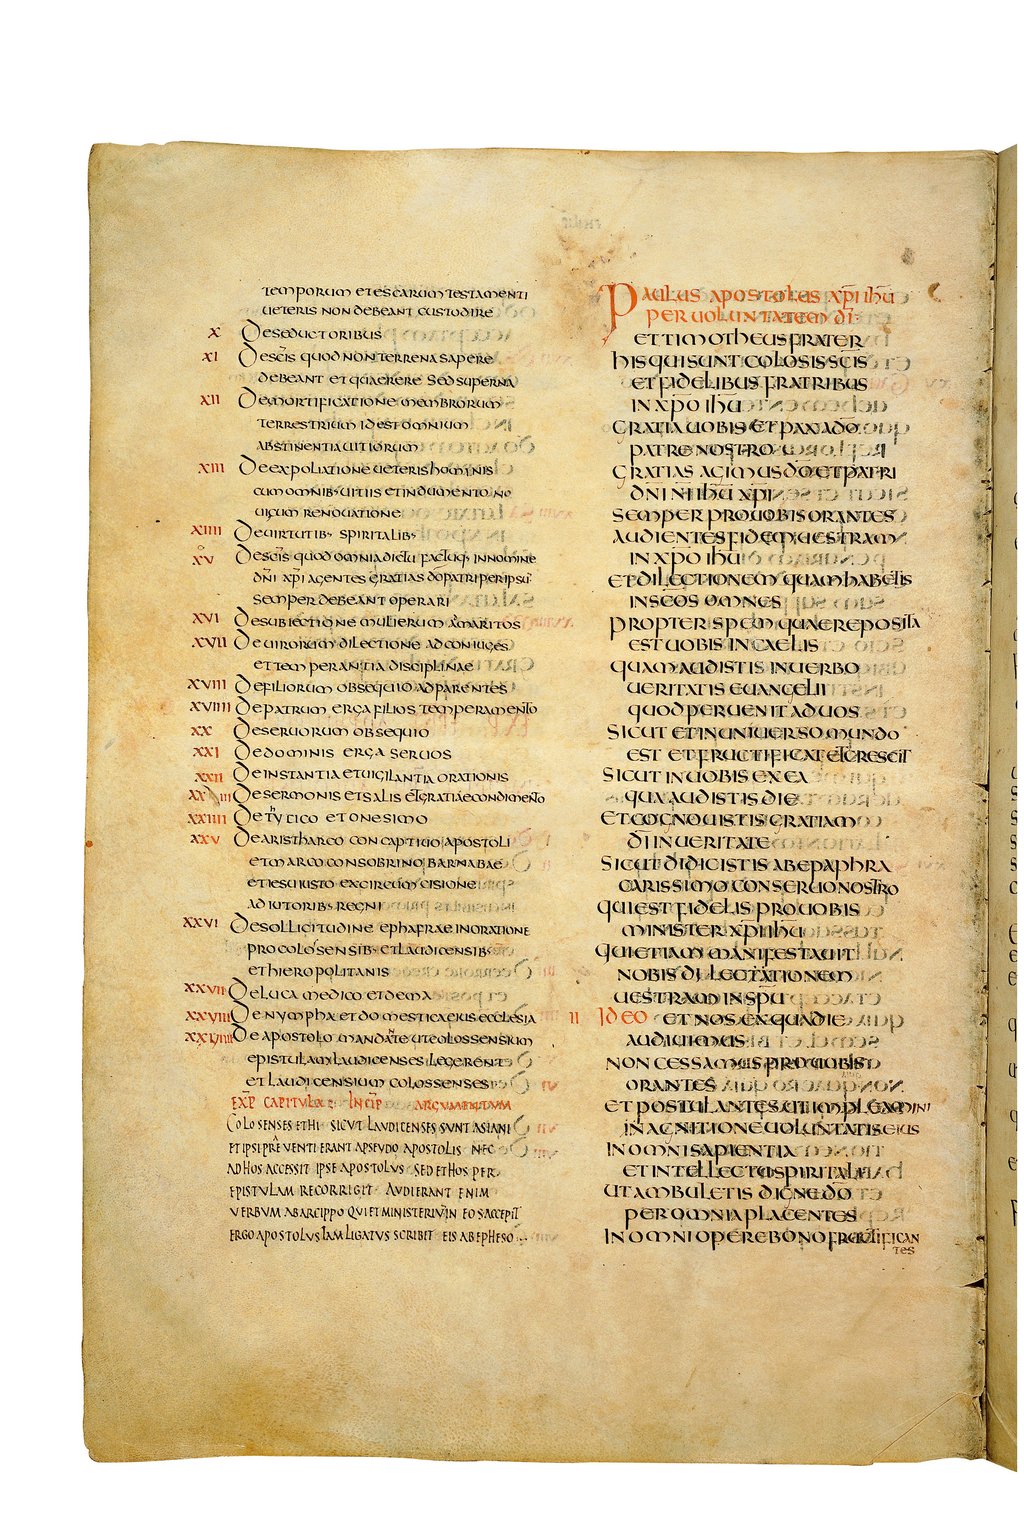 temporum et escarum testamenti
ueteris non debeant custodire
X De seductoribus
XI De sc̄is quod non terrena sapere
debeant et quaerere sed superna
XII De mortificatione membrorum
terrestrium id est omnium
abstinentia uitiorum
XIII De expoliatione ueteris hominis
cum omnib· uitiis et indumento no
ui cum renouatione
XIIII De uirtutib· spiritalib·
XV De sc̄is quod omnia dictu factuq· in nomine
dn̄i xp̄i agentes gratias dō patri per ipsū
semper debeant operari
XVI De subiectione mulierum ad maritos
XVII De uirorum dilectione ad coniuges
et temperantia disciplinae
XVIII De filiorum obsequio ad parentes
XVIIII De patrum erga filios temperamento
XX De seruorum obsequio
XXI De dominis erga seruos
XXII De instantia et uigilantia orationis
XXIII De sermonis et salis et gratiae condimento
XXIIII De tyhcico et onesimo
XXV De aristharco concaptiuo apostoli
et marco consobrino barnabae
et iesu iusto ex circumcisione
adiutorib· regni
XXVI De sollicitudine ephaphrae in oratione
pro colosensib· et laudicensib·
et hieropolitanis
XXVII De luca medico et dema
XXVIII De nympha et domestica eius ecclesia
XXVIIII De apostolo mandante ut colossensium
epistulam laudicenses legerent
et laudicensium colossenses
EXP̄ CAPITULA : INCIP̄ ARGUMENTUM
COLOSENSES ET HI SICUT LAUDICENSES SUNT ASIANI
ET IPSI PRĒUENTI ERANT A PSEUDO APOSTOLIS NEC
AD HOS ACCESSIT IPSE APOSTOLUS SED ET HOS PER
EPISTULAM RECORRIGIT AUDIERANT ENIM
UERBUM AB ARCIPPO QUI ET MINISTERIUM IN EOS ACCEPIT
ERGO APOSTOLUS IAM LIGATUS SCRIBIT EIS AB EPHESO
Paulus apostolus xp̄i ih̄u
per uoluntatem dī
et timotheus frater
his qui sunt colosis sc̄is
et fidelibus fratribus
in xp̄o ih̄u
gratia uobis et pax a dō
patre nostro
gratias agimus dō et patri
dn̄i n̄i ih̄u xp̄i
semper pro uobis orantes
audientes fidem uestram
in xp̄o ih̄u
et dilectionem quam habetis
in sc̄os omnes
propter spem quae reposita
est uobis in caelis
quam audistis in uerbo
ueritatis euangelii
quod peruenit ad uos
sicut et in uniuerso mundo
est et fructificat et crescit
sicut in uobis ex ea
qua audistis die
et cognouistis gratiam
dī in ueritate
sicut didicistis ab epaphra
carissimo conseruo nostro
qui est fidelis pro uobis
minister xp̄i ih̄u
qui etiam manifestauit
nobis dilectationem
uestram in sp̄u
II Ideo et nos ex qua die
audiuimus
non cessamus pro uobis
orantes
et postulantes ut impleamini
in agnitione uoluntatis eius
in omni sapientia
et intellecto spiritali
ut ambuletis digne dō
per omnia placentes
in omni opere bono fructifican
tes